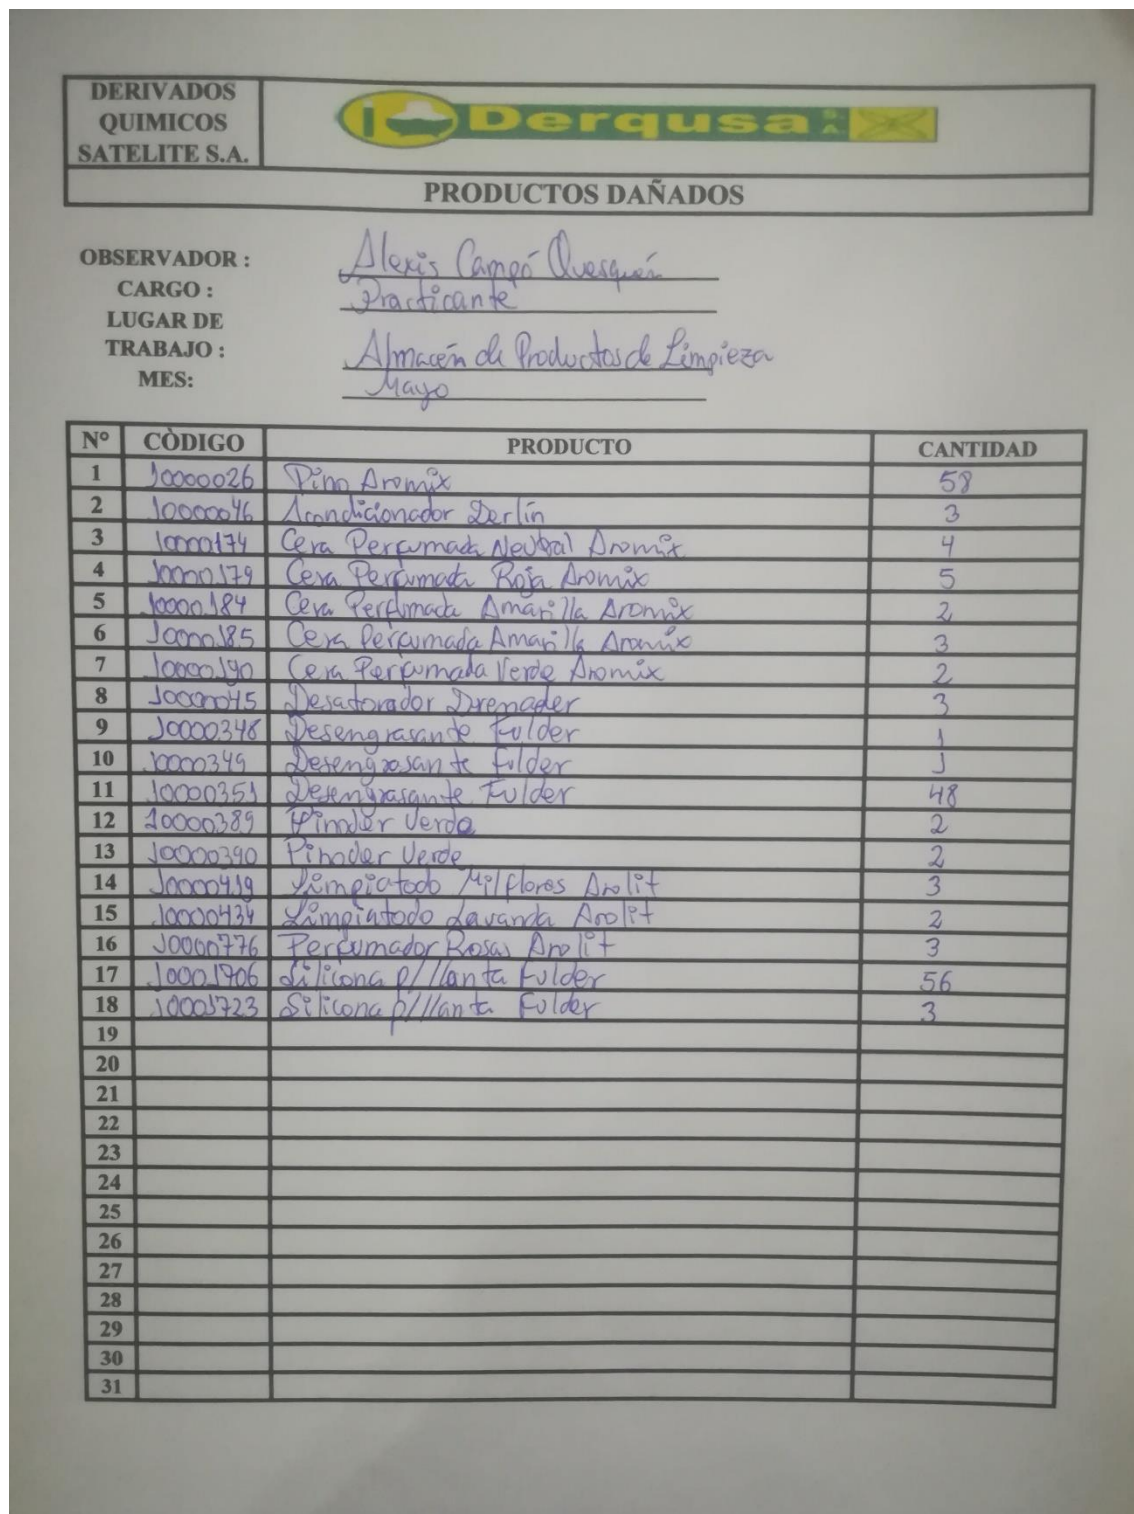 DERIVADOS
QUIMICOS
SATELITE S.A.
Derqusa S.A.
PRODUCTOS DAÑADOS
OBSERVADOR : Alexis Campó Quesquén
CARGO : Practicante
LUGAR DE
TRABAJO : Almacén de Productos de Limpieza
MES: Mayo
N° CÒDIGO PRODUCTO CANTIDAD
1 10000026 Pino Aromix 58
2 10000046 Acondicionador Derlín 3
3 10000174 Cera Perfumada Neutral Aromix 4
4 10000179 Cera Perfumada Roja Aromix 5
5 10000184 Cera Perfumada Amarilla Aromix 2
6 10000185 Cera Perfumada Amarilla Aromix 3
7 10000190 Cera Perfumada Verde Aromix 2
8 10000045 Desatorador Drenader 3
9 10000348 Desengrasante Fulder 1
10 10000349 Desengrasante Fulder 1
11 10000351 Desengrasante Fulder 48
12 10000389 Pinoder Verde 2
13 10000390 Pinoder Verde 2
14 10000419 Limpiatodo Milflores Arolit 3
15 10000434 Limpiatodo Lavanda Arolit 2
16 10000776 Perfumador Rosas Arolit 3
17 10001706 Silicona p/llanta Fulder 56
18 10001723 Silicona p/llanta Fulder 3
19
20
21
22
23
24
25
26
27
28
29
30
31